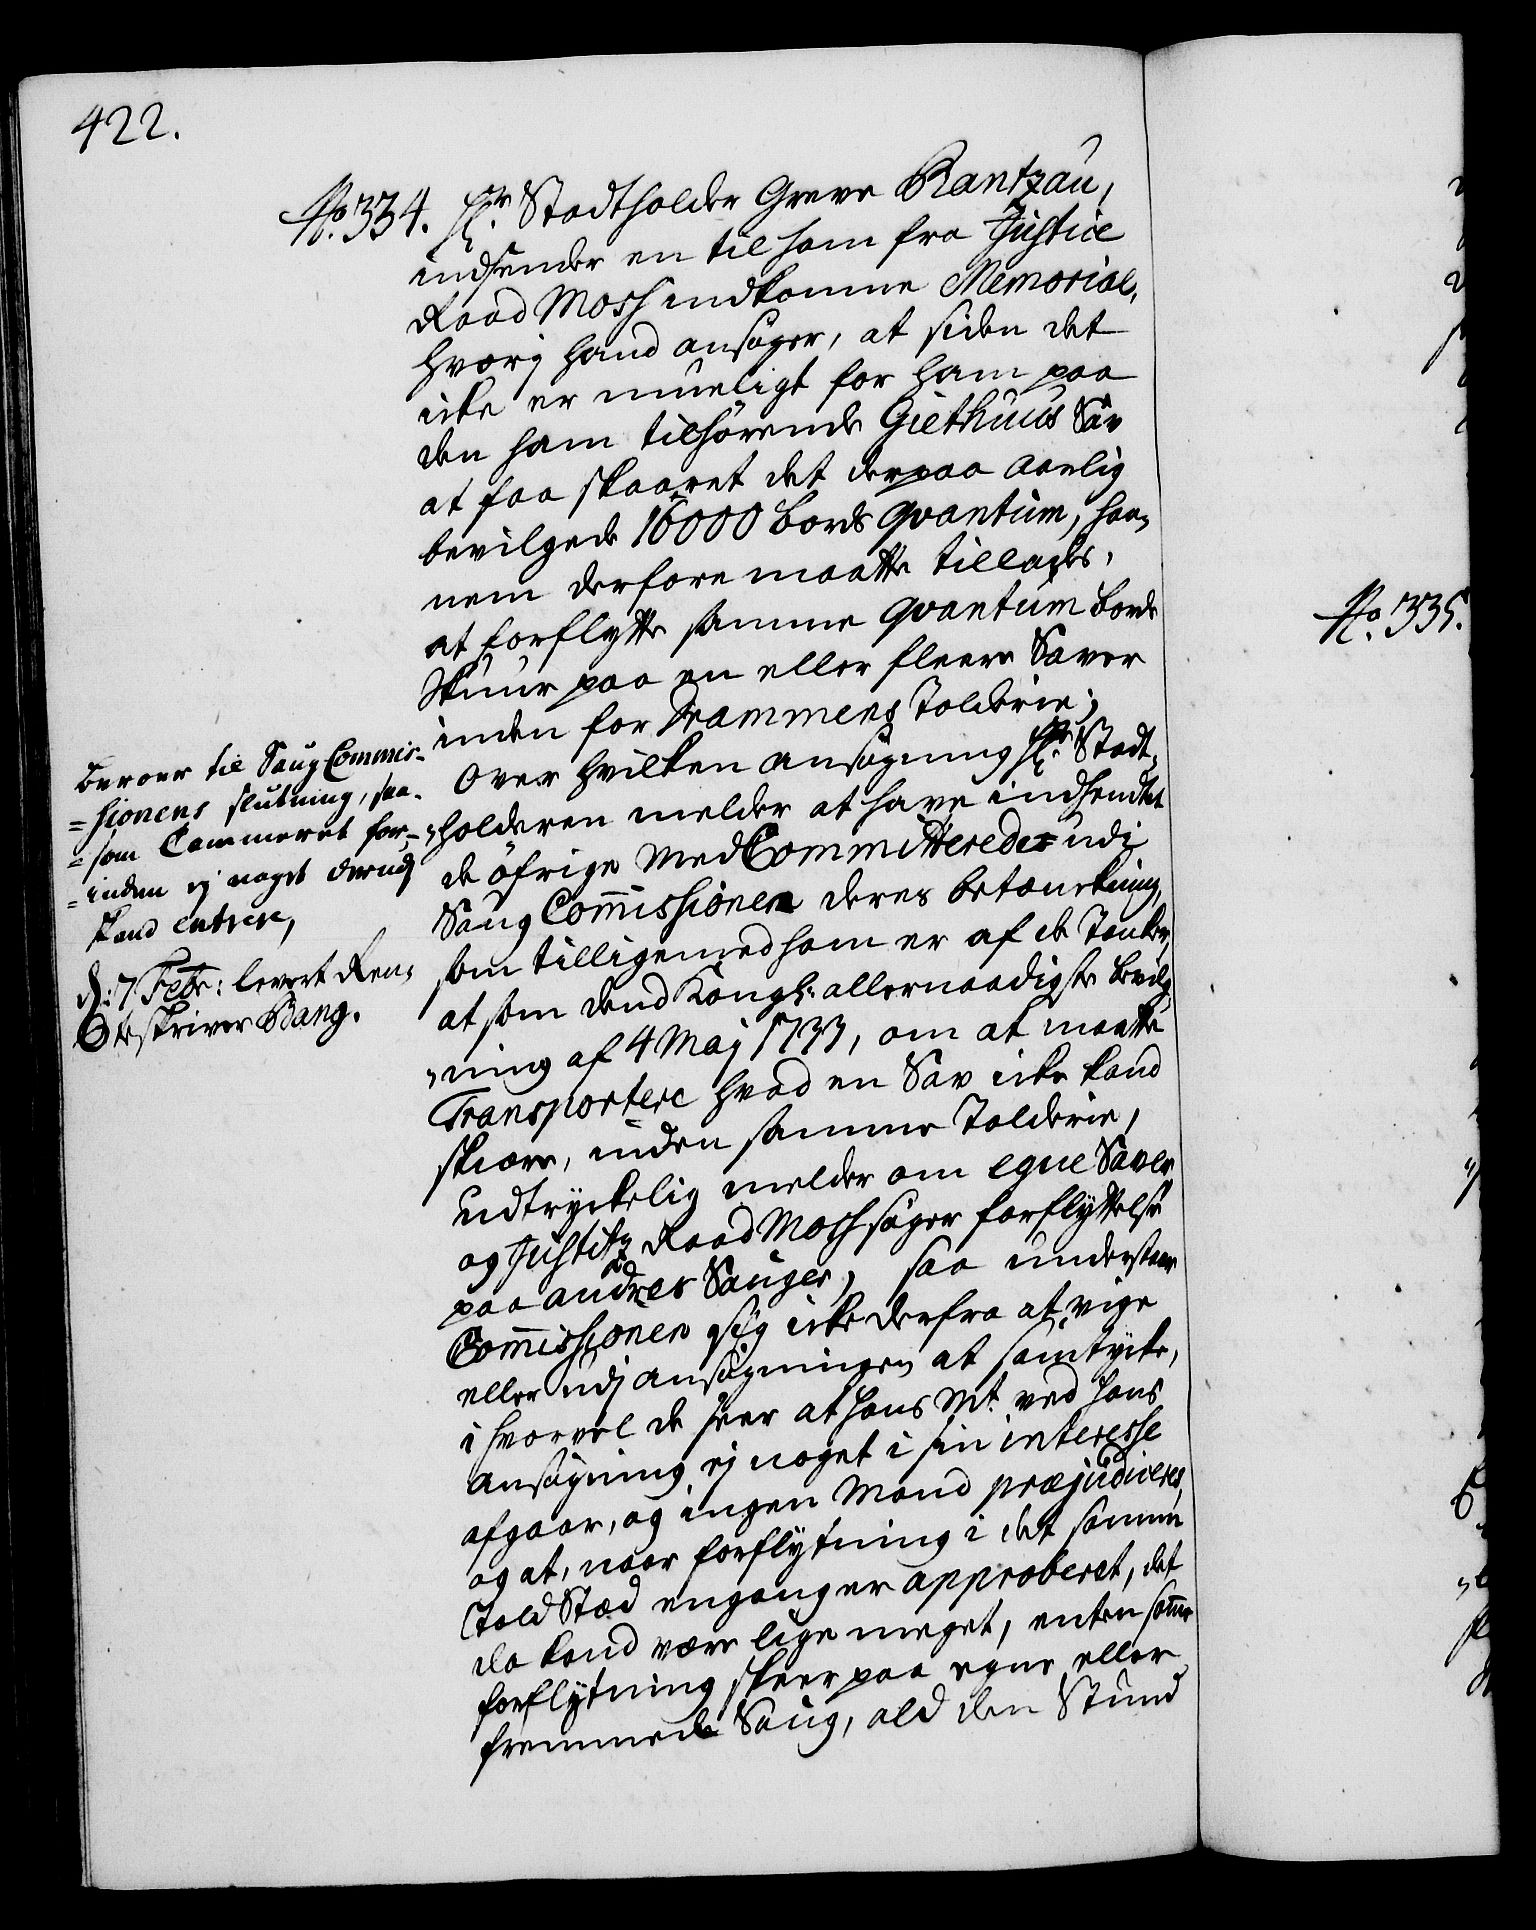 422.
No. 334. Hr. Stadtholder Greve Rantzau,
indsender en til ham fra Justice
Raad Mosh indkomne Memorial,
hvorj hand ansøger, at siden det
icke er mueligt for ham paa
den ham tilhørende Giethuus Sav
at faa skaaret det derpaa aarlig
bevilgede 16000 bords qvantum, han,
nem derfore maatte tillades,
at forflytte samme qvantum bords
Skuur paa en eller fleere Saver
inden for Drammens Tolderie;
Over hvilken ansøgning Hr. Stadt,
holderen melder at have indhendtet
de öfrige Med Committerede udi
Saug Commissionen deres betænckning,
som tilligemed ham er af de Tanker,
at som dend Kongl: allernaadigste bevilg,
ning af 4 Maj 1733, om at maatte
Transportere hvad en Sav icke kand
skiære, inden samme Tolderie,
udtryckelig melder om egne Saver
og Justitz Raad Mosh søger forflyttelse
paa andres Sauger, saa understaar
Commissionen sig icke derfra at vige
eller udj ansøgningen at samtycke,
i hvorvel de seer at Hans Mt. ved hans
ansøgning ej noget i sin interesse
afgaar, og ingen Mand præjudiceres,
og at, naar forflytning i det samme
Told Stæd engang er approberet, det
da kand være lige meget, enten samme
forflytning skeer paa egne eller
fremmede Saug, ald den Stund
beroer til Saug Commis-
=sionens slutning, saa-
=som Cammeret for-
=inden ej noget derudj
kand entrere,
d: 7 Febr: levert Ren,
teskriver Bang.
No. 335.